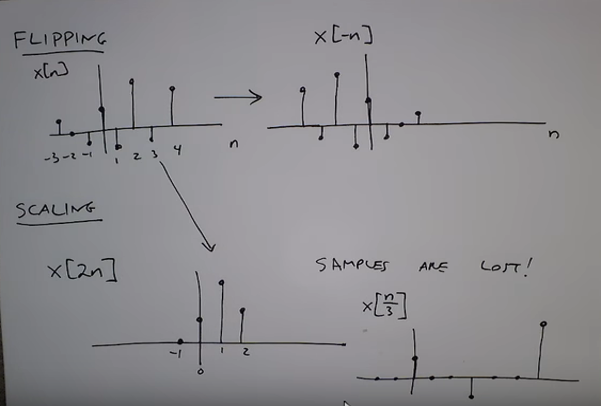 FLIPPING
x[n]
-3 -2 -1 1 2 3 4 n
x[-n]
n
SCALING
x[2n]
-1 0 1 2
SAMPLES ARE LOST!
x[n/3]